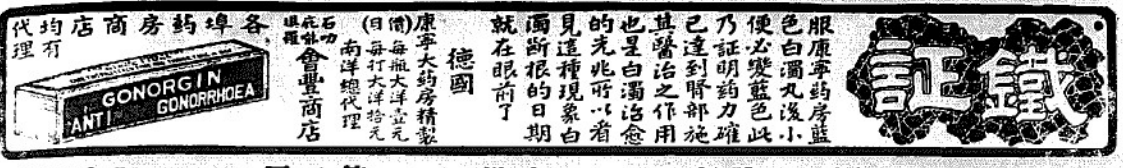 鐵証
服康寧药房藍
色白濁丸後小
便必變藍色此
乃証明药力確
已達到腎部施
其醫治之作用
也是白濁治愈
的先兆所以看
見這種現象白
濁断根的日期
就在眼前了
德國
康寧大药房精製
(價)每瓶大洋壹元
(目)每打大洋拾元
南洋總代理
石叻
庇能
會豐商店
各埠药房商店
均有
代理
GONORGIN
ANTI GONORRHOEA